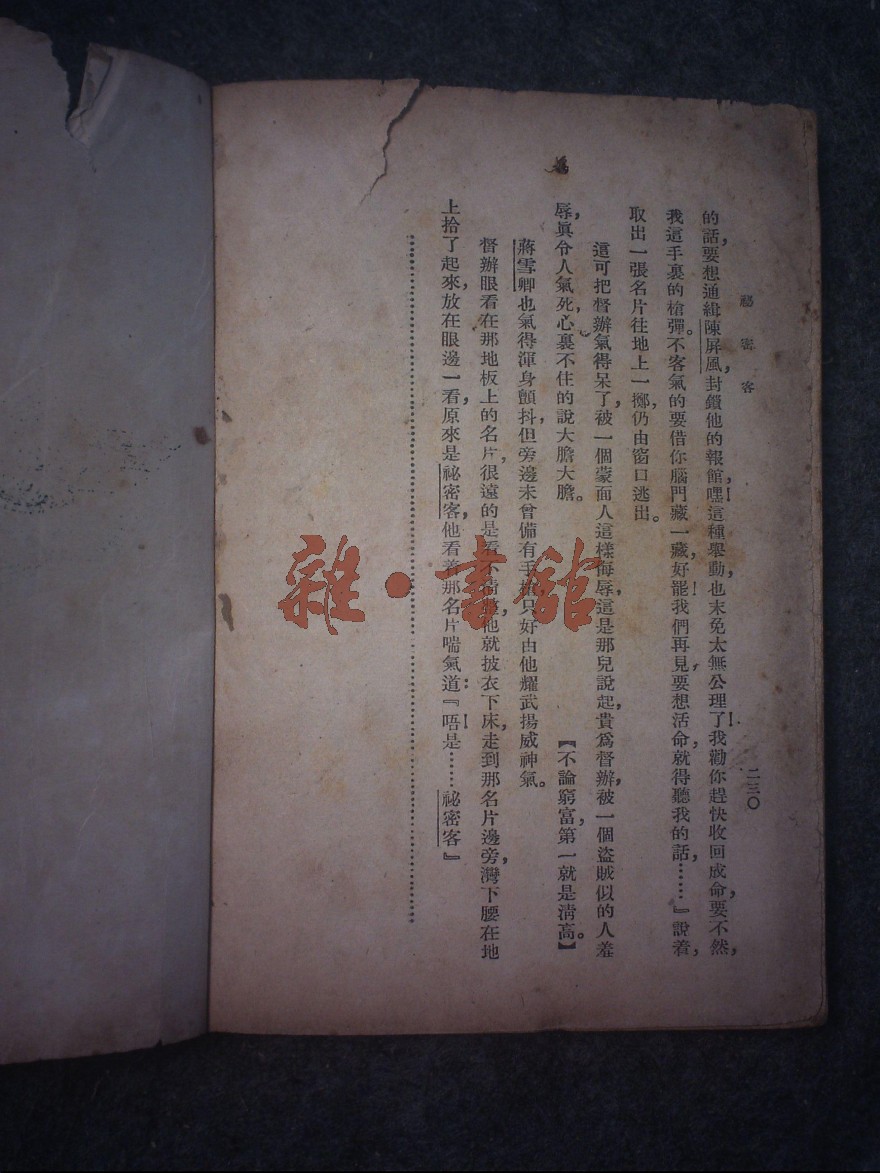 祕密客
二三〇
的話，要想通緝陳屏風，封鎖他的報館，嘿！這種舉動，也未免太無公理了！我勸你趕快收回成命，要不然，
我這手裏的槍彈。不客氣的要借你腦門藏一藏，好罷！我們再見，要想活命，就得聽我的話，……』說着，
取出一張名片往地上一擲，仍由窗口逃出。
這可把督辦氣得呆了，被一個蒙面人這樣侮辱，這是那兒說起，貴爲督辦，被一個盜賊似的人羞
辱，眞令人氣死，心裏不住的說大膽大膽。
【不論窮富，第一就是淸高。】
蔣雪卿也氣得渾身顫抖，但旁邊未曾備有手槍，只好由他耀武揚威神氣。
督辦眼看在那地板上的名片，很遠的是看不淸楚，他就披衣下床，走到那名片邊旁，灣下腰在地
上拾了起來，放在眼邊一看，原來是祕密客，他看着那名片喘氣道：『唔！是……祕密客』
雜·書館